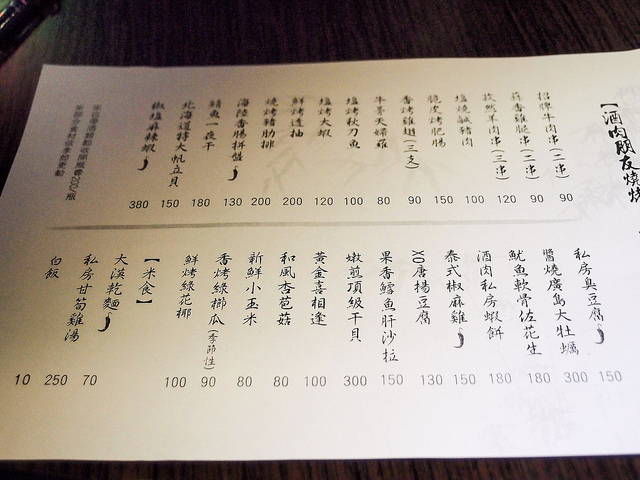 【酒肉朋友燒烤
招牌牛肉串(二串) 90
蒜香雞腿串(二串) 90
孜然羊肉串(三串) 120
塩燒鹹豬肉 100
脆皮烤肥腸 150
香烤雞翅(三支) 90
牛蒡天婦羅 80
塩烤秋刀魚 100
塩烤大蝦 120
鮮烤透抽 200
燒烤豬肋排 200
海陸香腸拼盤 130
鯖魚一夜干 180
北海道特大帆立貝 150
椒塩麻辣蝦 380
私房臭豆腐 150
醬燒廣島大牡蠣 300
魷魚軟骨佐花生 180
酒肉私房蝦餅 180
泰式椒麻雞 150
XO唐揚豆腐 130
果香鱈魚肝沙拉 150
嫩煎頂級干貝 300
黃金喜相逢 100
和風杏苞菇 80
新鮮小玉米 80
香烤綠櫛瓜(季節性) 90
鮮烤綠花椰 100
【米食】
大漠乾麵 70
私房甘筍雞湯 250
白飯 10